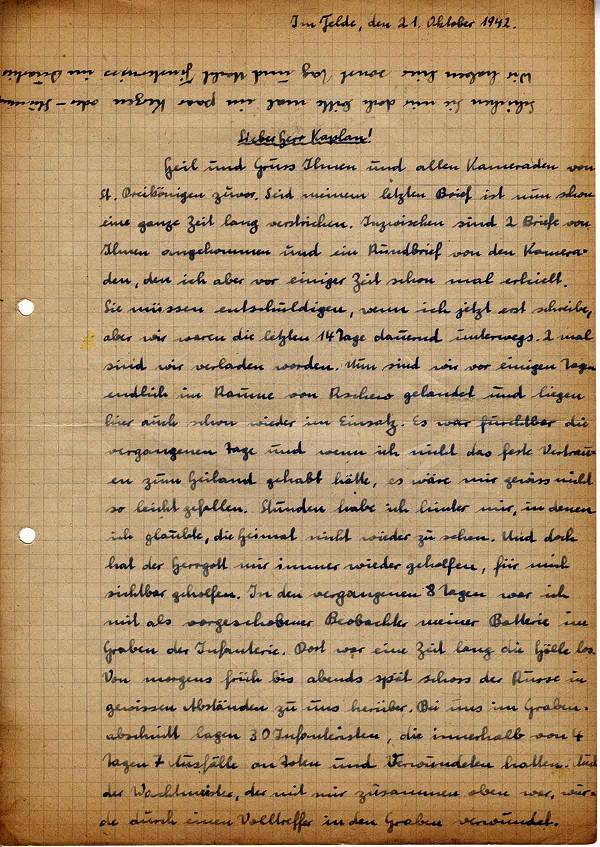 Im Felde, den 21. Oktober 1942.
Schicken Sie mir doch bitte mal ein paar Kerzen oder
Wir haben hier sonst Tag und Nacht Finsternis im
Lieber Herr Kaplan!
Heil und Gruss Ihnen und allen Kameraden von
St. Dreikönigen zuvor. Seid meinem letzten Brief ist nun schon
eine ganze Zeit lang verstrichen. Inzwischen sind 2 Briefe von
Ihnen angekommen und ein Rundbrief von den Kamera-
den, den ich aber vor einiger Zeit schon mal erhielt.
Sie müssen entschuldigen, wenn ich jetzt erst schreibe,
aber wir waren die letzten 14 Tage dauernd unterwegs. 2 mal
sind wir verladen worden. Nun sind wir vor einigen Tagen
endlich im Raume von Rschew gelandet und liegen
hier auch schon wieder im Einsatz. Es war furchtbar die
vergangenen Tage und wenn ich nicht das feste Vertrau-
en zum Heiland gehabt hätte, es wäre mir gewiss nicht
so leicht gefallen. Stunden habe ich hinter mir, in denen
ich glaubte, die Heimat nicht wieder zu sehen. Und doch
hat der Herrgott mir immer wieder geholfen, für mich
sichtbar geholfen. In den vergangenen 8 Tagen war ich
mit als vorgeschobener Beobachter meiner Batterie im
Graben der Infanterie. Dort war eine Zeit lang die Hölle los.
Von morgens früh bis abends spät schoss der Russe in
gewissen Abständen zu uns herüber. Bei uns im Graben-
abschnitt lagen 30 Infanteristen, die innerhalb von 4
Tagen 7 Ausfälle an Toten und Verwundeten hatten. Auch
der Wachtmeister, der mit mir zusammen oben war, wur-
de durch einen Volltreffer in den Graben verwundet.